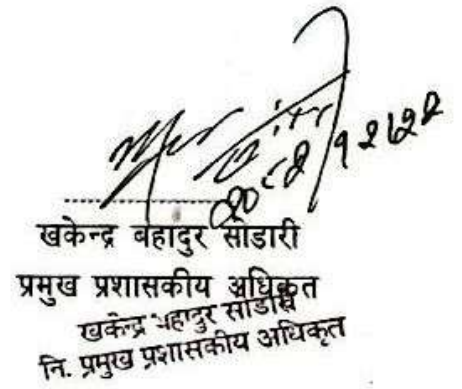 खकेन्द्र बहादुर सोडारी
प्रमुख प्रशासकीय अधिकृत
खकेन्द्र बहादुर सोडारी
नि. प्रमुख प्रशासकीय अधिकृत